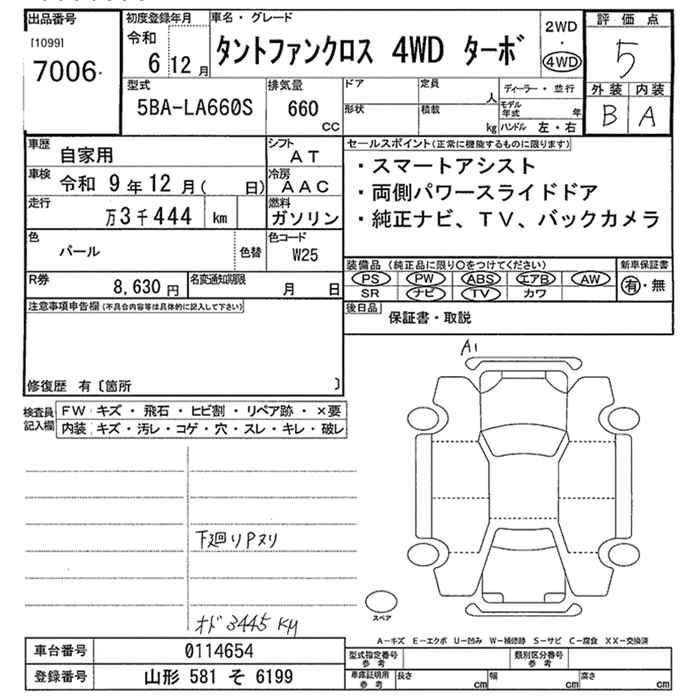 出品番号
[1099]
7006
初度登録年月
令和
6 12 月
車名・グレード
タントファンクロス 4WD ターボ
2WD
・
4WD
評価点
5
外装 内装
B A
型式
5BA-LA660S
排気量
660
CC
ドア
定員
人
形状
積載
kg
ディーラー・並行
モデル年式 年
ハンドル 左・右
車歴
自家用
シフト
AT
車検
令和 9年12月( 日)
冷房
AAC
走行
万3千444 km
燃料
ガソリン
色
パール
色替
色コード
W25
R券
8,630 円
名変通知期限
月 日
セールスポイント(正常に機能するものに限ります)
・スマートアシスト
・両側パワースライドドア
・純正ナビ、TV、バックカメラ
装備品(純正品に限り○をつけてください)
PS PW ABS エアB AW
SR ナビ TV カワ
新車保証書
有・無
後日品
保証書・取説
注意事項申告欄(不具合内容等は具体的に記入して下さい)
修復歴 有〔箇所 〕
検査員記入欄
FW キズ・飛石・ヒビ割・リペア跡・×要
内装 キズ・汚レ・コゲ・穴・スレ・キレ・破レ
A1
下廻りPヌリ
オド3445 KM
スペア
A-キズ E-エクボ U-凹み W-補修跡 S-サビ C-腐食 XX-交換済
車台番号
0114654
登録番号
山形 581 そ 6199
型式指定番号
参考
類別区分番号
参考
車庫証明用
参考
長さ cm
幅 cm
高さ cm